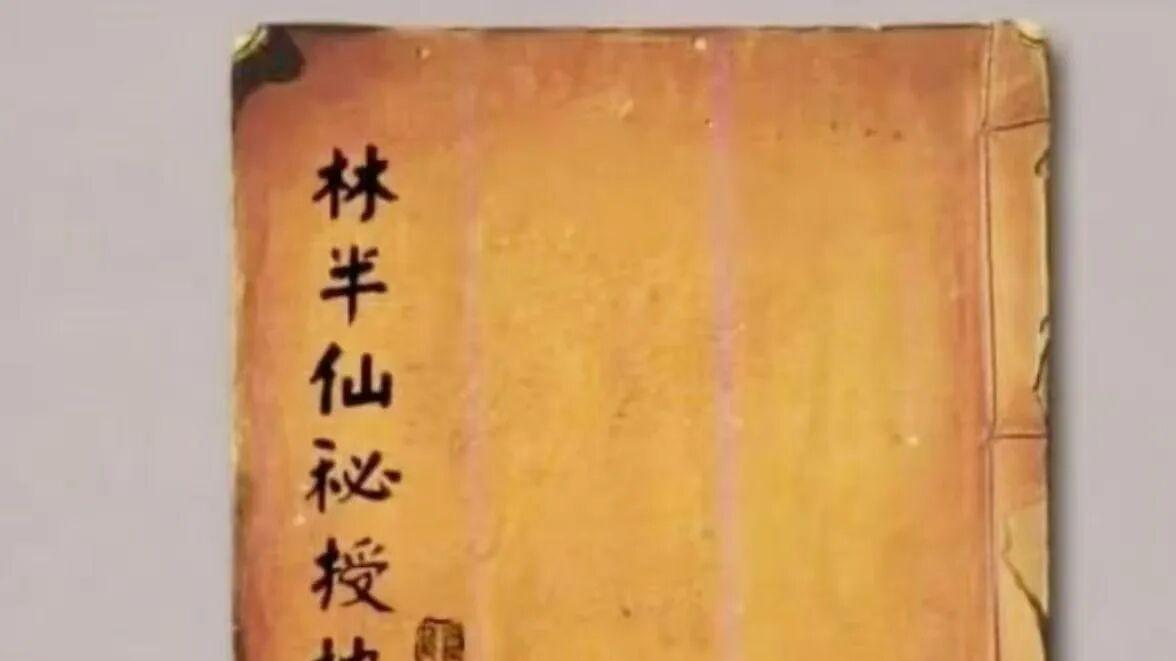 林半仙秘授